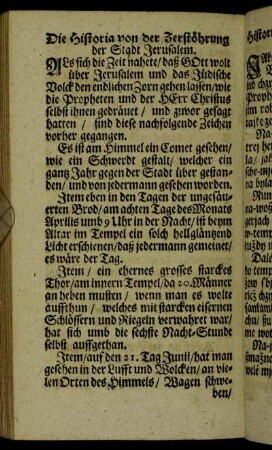 Die Historia von der Zerstöhrung
der Stadt Jerusalem.
ALs sich die Zeit nahete/ daß GOtt wolt
über Jerusalem und das Jüdische
Volck den endlichen Zorn gehen lassen/ wie
die Propheten und der HErr Christus
selbst ihnen gedräuet / und zuvor gesagt
hatten / sind diese nachfolgende Zeichen
vorher gegangen.
Es ist am Himmel ein Comet gesehen/
wie ein Schwerdt gestalt/ welcher ein
gantz Jahr gegen der Stadt über gestan-
den/ und von jedermann gesehen worden.
Item eben in den Tagen der ungesäu-
erten Brod/ am achten Tage des Monats
Aprilis umb 9 Uhr in der Nacht/ ist beym
Altar im Tempel ein solch hellgläntzend
Licht erschienen/ daß jedermann gemeinet/
es wäre der Tag.
Item / ein ehernes grosses starckes
Thor/ am innern Tempel/ da 20. Männer
an heben musten / wenn man es wolte
auffthun / welches mit starcken eisernen
Schlössern und Riegeln verwahret war/
hat sich umb die sechste Nacht-Stunde
selbst auffgethan.
Item/ auf den 21. Tag Junii/ hat man
gesehen in der Lufft und Wolcken/ an vie-
len Orten des Himmels/ Wagen schwe-
ben/